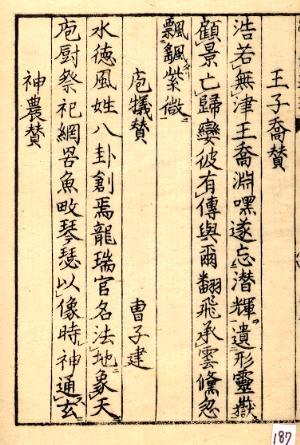 王子喬賛
浩若無津王喬淵嘿遂忘潜輝遺形靈嶽
顧景亡歸變彼有傳與爾翻飛承雲儵忽
飄颻紫微
庖犧賛
曺子建
水德風姓八卦創焉龍瑞官名法地象天
庖厨祭祀網罟魚畋琴瑟以像時神通玄
神農賛
187